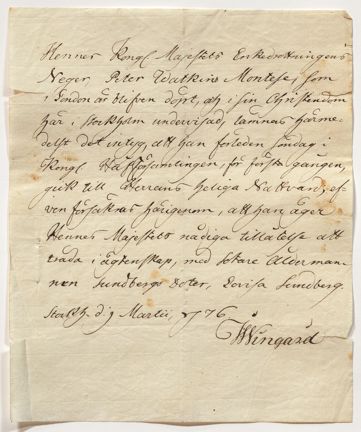 Hennes Kongl Majestets Enkedrottningens
Neger, Peter Watkins Montese, som
i London är blifven döpt, och i sin Christendom
här i Stockholm undervisad, lämnas härme-
delst det intyg, att han förleden söndag i
Kongl Hofförsamlingen, för första gången,
gick till Herrans heliga Nattvard; äf-
ven försäkras härigenom, att han äger
Hennes Majestets nådiga tillåtelse att
träda i äktenskap, med Åldermannen
Sundbergs doter, Lovisa Sundberg.
Stockh. d. 9 Martii, 1776
Wingård